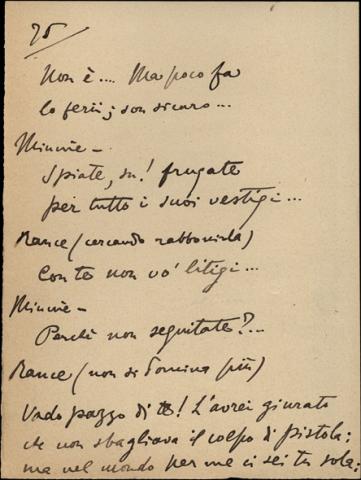 75
Non è.... Ma poco fa
lo ferii; son sicuro...
Minnie -
Spiate, su! frugate
per tutto i suoi vestigi...
Rance (cercando rabbonirla)
Con te non vo' litigi...
Minnie -
Perchè non seguitate?...
Rance (non si domina più)
Vado pazzo di te! L'avrei giurato
che non sbagliava il colpo di pistola;
ma nel mondo per me ci sei tu sola;